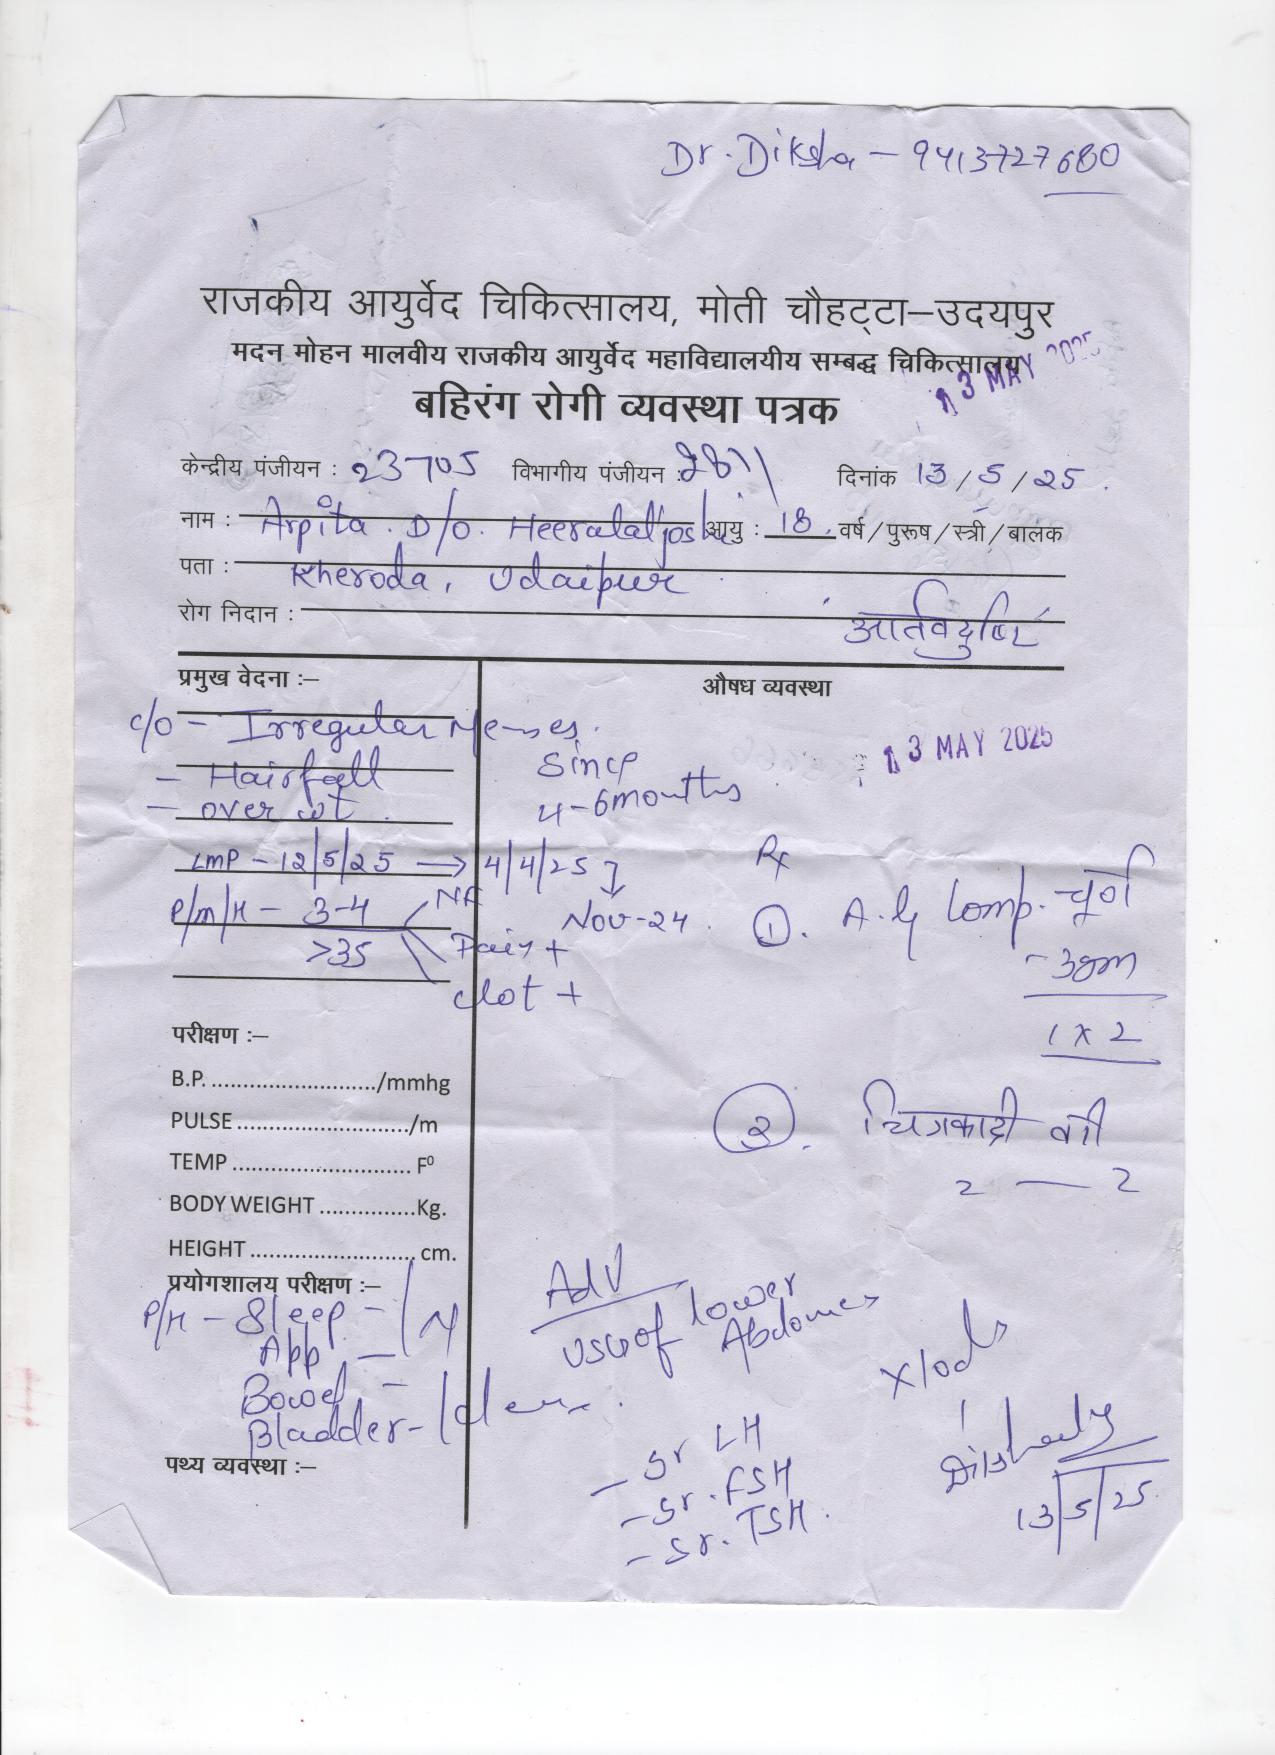 Dr. Diksha - 9413727680
राजकीय आयुर्वेद चिकित्सालय, मोती चौहट्टा–उदयपुर
मदन मोहन मालवीय राजकीय आयुर्वेद महाविद्यालयीय सम्बद्ध चिकित्सालय
13 MAY 2025
बहिरंग रोगी व्यवस्था पत्रक
केन्द्रीय पंजीयन : 23705 विभागीय पंजीयन : दिनांक 13/5/25.
नाम : Arpita D/o. Heeralal joshi आयु : 18 वर्ष/पुरूष/स्त्री/बालक
पता : Kheroda, Udaipur
रोग निदान :
आर्तवदुष्टि
प्रमुख वेदना :–
औषध व्यवस्था
c/o - Irregular Menses.
- Hairfall
- over wt.
Since
4-6 months
13 MAY 2025
LMP - 12/5/25 → 4/4/25
Nov-24
P/M/H - 3-4
>35
Pain +
clot +
Rx
①. A.G Comp. चूर्ण
- 3gm
1 x 2
②. चित्रकादी वटी
2 — 2
परीक्षण :–
B.P. ........................../mmhg
PULSE .........................../m
TEMP ............................ F⁰
BODY WEIGHT ...............Kg.
HEIGHT .......................... cm.
प्रयोगशालय परीक्षण :–
P/H - Sleep - N
App -
Bowel -
Bladder - clear.
पथ्य व्यवस्था :–
Adv
USG of lower Abdomen
- Sr LH
- Sr. FSH
- Sr. TSH.
13/5/25